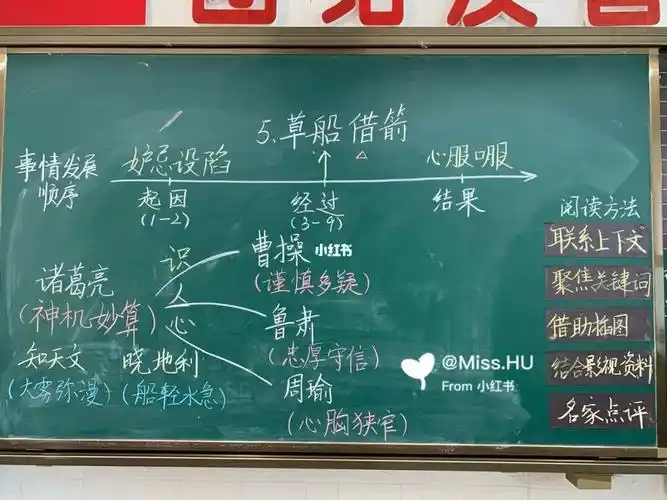 5.草船借箭
事情发展
顺序
妒忌设陷
心服口服
起因
(1-2)
经过
(3-9)
结果
诸葛亮
(神机妙算)
识人心
曹操
(谨慎多疑)
鲁肃
(忠厚守信)
周瑜
(心胸狭窄)
知天文
(大雾弥漫)
晓地利
(船轻水急)
阅读方法
联系上下文
聚焦关键词
借助插图
结合影视资料
名家点评
小红书
@Miss.HU
From 小红书